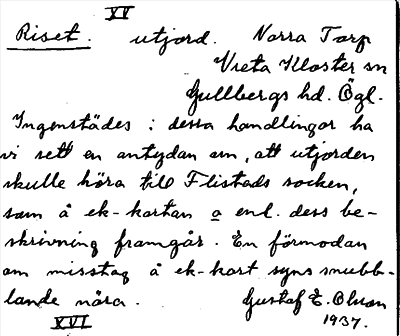 XV
Riset. utjord. Norra Torp
Vreta Kloster sn
Gullbergs hd. Ögl.
Ingenstädes i dessa handlingar ha
vi sett en antydan om, att utjorden
skulle höra till Flistads socken,
som å ek-kartan o enl. dess be-
skrivning framgår. En förmodan
om misstag å ek-kart syns snubb-
lande nära. Gustaf E. Olsson
XVI 1937.